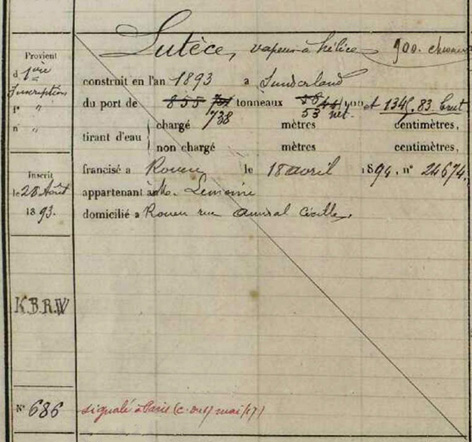 Lutèce, vapeur à hélice 900 chevaux
Provient
d 1ère
Inscription
F° "
n° "
construit en l'an 1893 a Sunderland
du port de 855 tonneaux et 1346, 83 brut
738 53 net
tirant d'eau chargé mètres centimètres,
non chargé mètres centimètres,
Inscrit
le 28 Août
1893.
francisé a Rouen le 18 avril 1894, n° 24674.
appartenant à M. Lemoine
domicilié a Rouen rue Amiral Cécille,
K.B.R.W
N° 686
signalé à Paris mai /17)